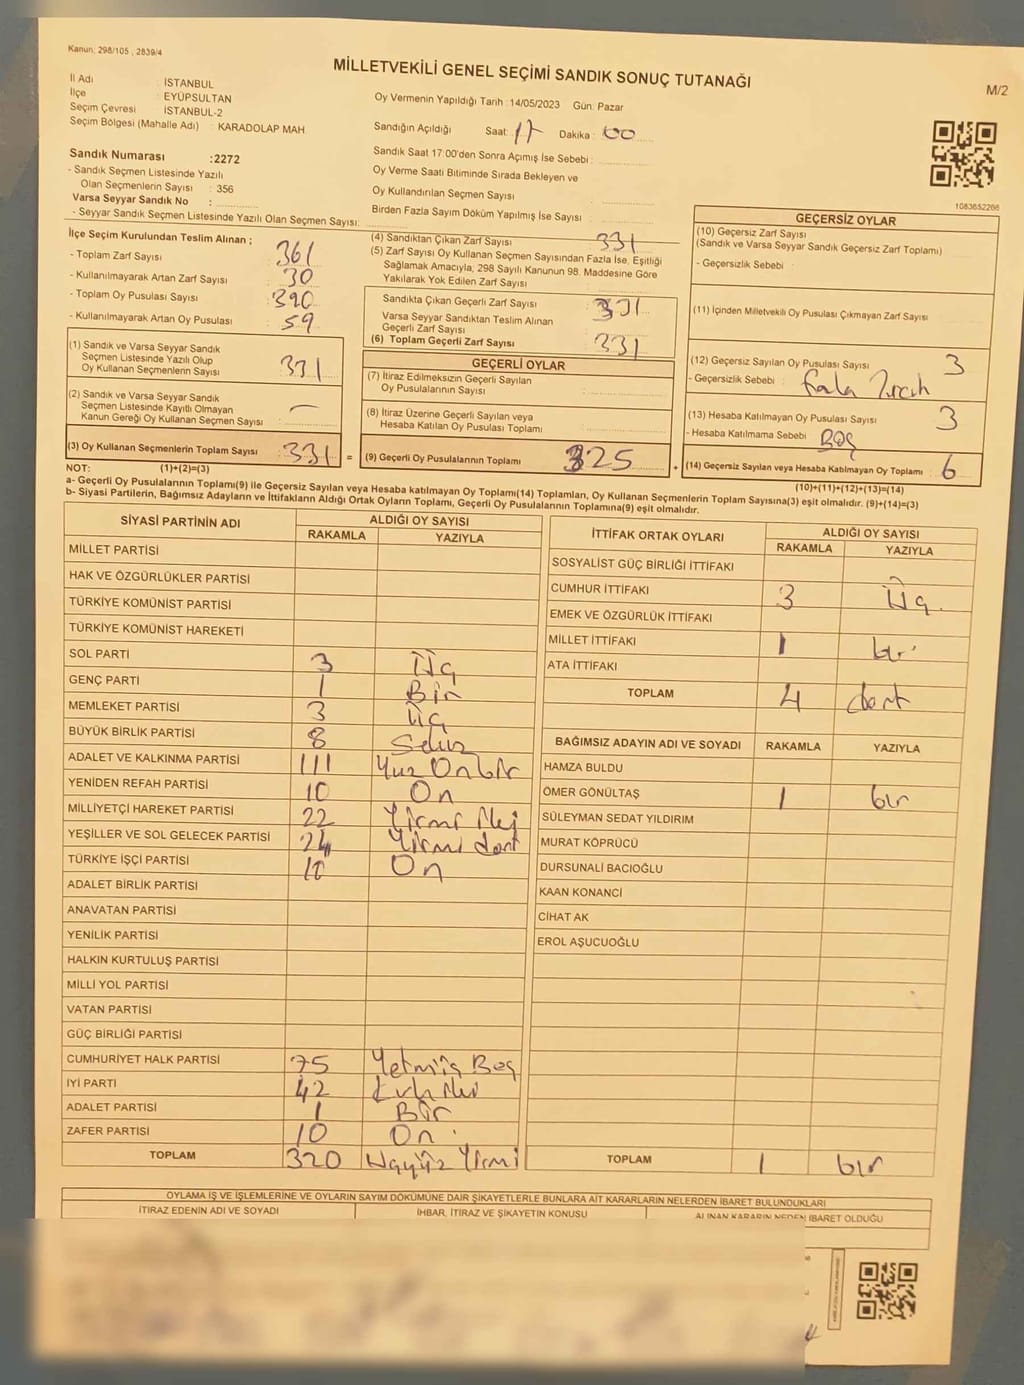 Kanun; 298/105 , 2839/4
MİLLETVEKİLİ GENEL SEÇİMİ SANDIK SONUÇ TUTANAĞI
M/2
İl Adı : İSTANBUL
İlçe : EYÜPSULTAN
Seçim Çevresi : İSTANBUL-2
Seçim Bölgesi (Mahalle Adı) : KARADOLAP MAH
Sandık Numarası :2272
- Sandık Seçmen Listesinde Yazılı
Olan Seçmenlerin Sayısı : 356
Varsa Seyyar Sandık No :
- Seyyar Sandık Seçmen Listesinde Yazılı Olan Seçmen Sayısı:
Oy Vermenin Yapıldığı Tarih :14/05/2023 Gün: Pazar
Sandığın Açıldığı Saat: 17 Dakika : 00
Sandık Saat 17:00'den Sonra Açımış İse Sebebi :
Oy Verme Saati Bitiminde Sırada Bekleyen ve
Oy Kullandırılan Seçmen Sayısı
Birden Fazla Sayım Döküm Yapılmış İse Sayısı :
1083652266
İlçe Seçim Kurulundan Teslim Alınan ;
- Toplam Zarf Sayısı : 361
- Kullanılmayarak Artan Zarf Sayısı : 30
- Toplam Oy Pusulası Sayısı : 390
- Kullanılmayarak Artan Oy Pusulası : 59
(1) Sandık ve Varsa Seyyar Sandık
Seçmen Listesinde Yazılı Olup
Oy Kullanan Seçmenlerin Sayısı : 331
(2) Sandık ve Varsa Seyyar Sandık
Seçmen Listesinde Kayıtlı Olmayan
Kanun Gereği Oy Kullanan Seçmen Sayısı : —
(3) Oy Kullanan Seçmenlerin Toplam Sayısı : 331 =
(4) Sandıktan Çıkan Zarf Sayısı : 331
(5) Zarf Sayısı Oy Kullanan Seçmen Sayısından Fazla İse, Eşitliği
Sağlamak Amacıyla; 298 Sayılı Kanunun 98. Maddesine Göre
Yakılarak Yok Edilen Zarf Sayısı :
Sandıkta Çıkan Geçerli Zarf Sayısı : 331
Varsa Seyyar Sandıktan Teslim Alınan
Geçerli Zarf Sayısı :
(6) Toplam Geçerli Zarf Sayısı : 331
GEÇERLİ OYLAR
(7) İtiraz Edilmeksizin Geçerli Sayılan
Oy Pusulalarının Sayısı :
(8) İtiraz Üzerine Geçerli Sayılan veya
Hesaba Katılan Oy Pusulası Toplamı :
(9) Geçerli Oy Pusulalarının Toplamı : 325 +
GEÇERSİZ OYLAR
(10) Geçersiz Zarf Sayısı
(Sandık ve Varsa Seyyar Sandık Geçersiz Zarf Toplamı) :
- Geçersizlik Sebebi :
(11) İçinden Milletvekili Oy Pusulası Çıkmayan Zarf Sayısı :
(12) Geçersiz Sayılan Oy Pusulası Sayısı : 3
- Geçersizlik Sebebi :
(13) Hesaba Katılmayan Oy Pusulası Sayısı : 3
- Hesaba Katılmama Sebebi : Boş
(14) Geçersiz Sayılan veya Hesaba Katılmayan Oy Toplamı : 6
NOT: (1)+(2)=(3)
(10)+(11)+(12)+(13)=(14)
a- Geçerli Oy Pusulalarının Toplamı(9) ile Geçersiz Sayılan veya Hesaba katılmayan Oy Toplamı(14) Toplamları, Oy Kullanan Seçmenlerin Toplam Sayısına(3) eşit olmalıdır. (9)+(14)=(3)
b- Siyasi Partilerin, Bağımsız Adayların ve İttifakların Aldığı Ortak Oyların Toplamı, Geçerli Oy Pusulalarının Toplamına(9) eşit olmalıdır.
SİYASİ PARTİNİN ADI ALDIĞI OY SAYISI
RAKAMLA YAZIYLA
MİLLET PARTİSİ
HAK VE ÖZGÜRLÜKLER PARTİSİ
TÜRKİYE KOMÜNİST PARTİSİ
TÜRKİYE KOMÜNİST HAREKETİ
SOL PARTİ 3 Üç
GENÇ PARTİ 1 Bir
MEMLEKET PARTİSİ 3 Üç
BÜYÜK BİRLİK PARTİSİ 8 Sekiz
ADALET VE KALKINMA PARTİSİ 111 Yüz Onbir
YENİDEN REFAH PARTİSİ 10 On
MİLLİYETÇİ HAREKET PARTİSİ 22 Yirmi iki
YEŞİLLER VE SOL GELECEK PARTİSİ 24 Yirmi dört
TÜRKİYE İŞÇİ PARTİSİ 10 On
ADALET BİRLİK PARTİSİ
ANAVATAN PARTİSİ
YENİLİK PARTİSİ
HALKIN KURTULUŞ PARTİSİ
MİLLİ YOL PARTİSİ
VATAN PARTİSİ
GÜÇ BİRLİĞİ PARTİSİ
CUMHURİYET HALK PARTİSİ 75 Yetmiş Beş
İYİ PARTİ 42 Kırk iki
ADALET PARTİSİ 1 Bir
ZAFER PARTİSİ 10 On
TOPLAM 320 Üçyüz Yirmi
İTTİFAK ORTAK OYLARI ALDIĞI OY SAYISI
RAKAMLA YAZIYLA
SOSYALİST GÜÇ BİRLİĞİ İTTİFAKI
CUMHUR İTTİFAKI 3 Üç
EMEK VE ÖZGÜRLÜK İTTİFAKI
MİLLET İTTİFAKI 1 bir
ATA İTTİFAKI
TOPLAM 4 dört
BAĞIMSIZ ADAYIN ADI VE SOYADI RAKAMLA YAZIYLA
HAMZA BULDU
ÖMER GÖNÜLTAŞ 1 bir
SÜLEYMAN SEDAT YILDIRIM
MURAT KÖPRÜCÜ
DURSUNALİ BACIOĞLU
KAAN KONANCİ
CİHAT AK
EROL AŞUCUOĞLU
TOPLAM 1 bir
OYLAMA İŞ VE İŞLEMLERİNE VE OYLARIN SAYIM DÖKÜMÜNE DAİR ŞİKAYETLERLE BUNLARA AİT KARARLARIN NELERDEN İBARET BULUNDUKLARI
İTİRAZ EDENİN ADI VE SOYADI İHBAR, İTİRAZ VE ŞİKAYETİN KONUSU ALINAN KARARIN NEDEN İBARET OLDUĞU